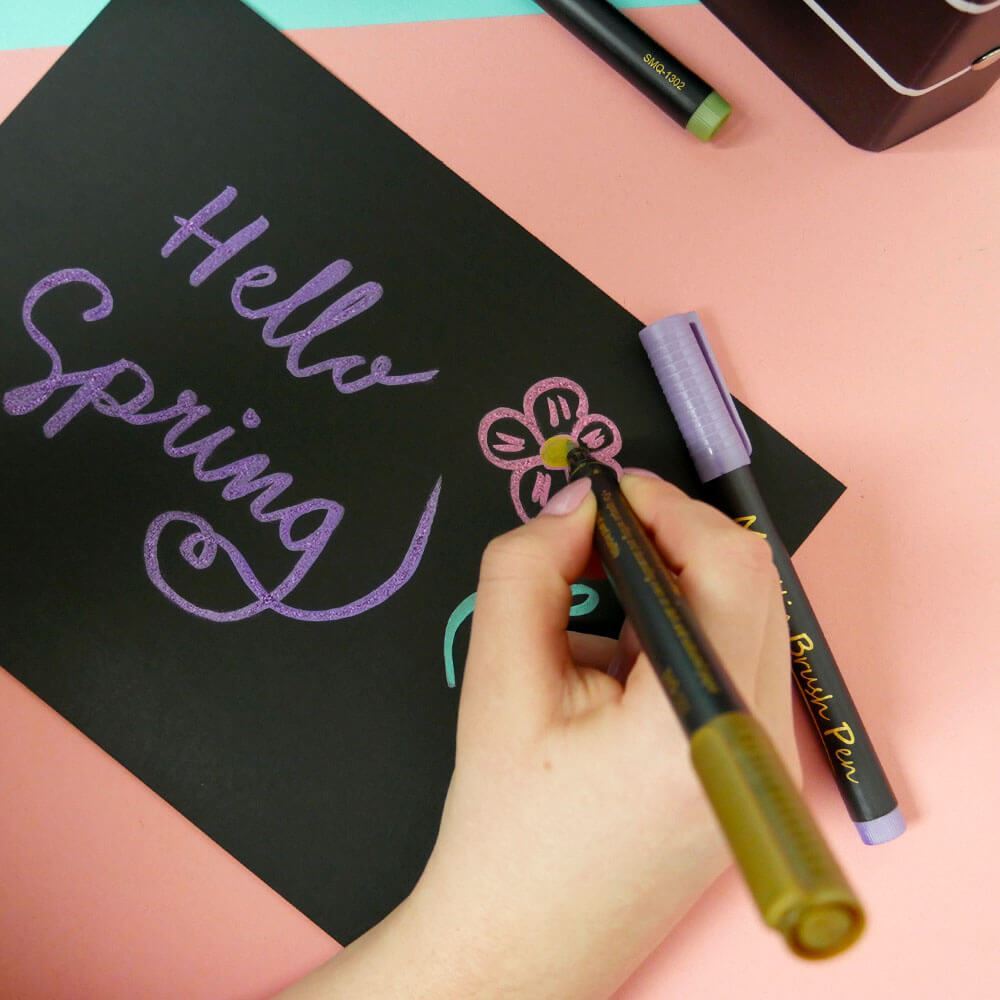 Hello
Spring
SMQ-1302
Brush Pen